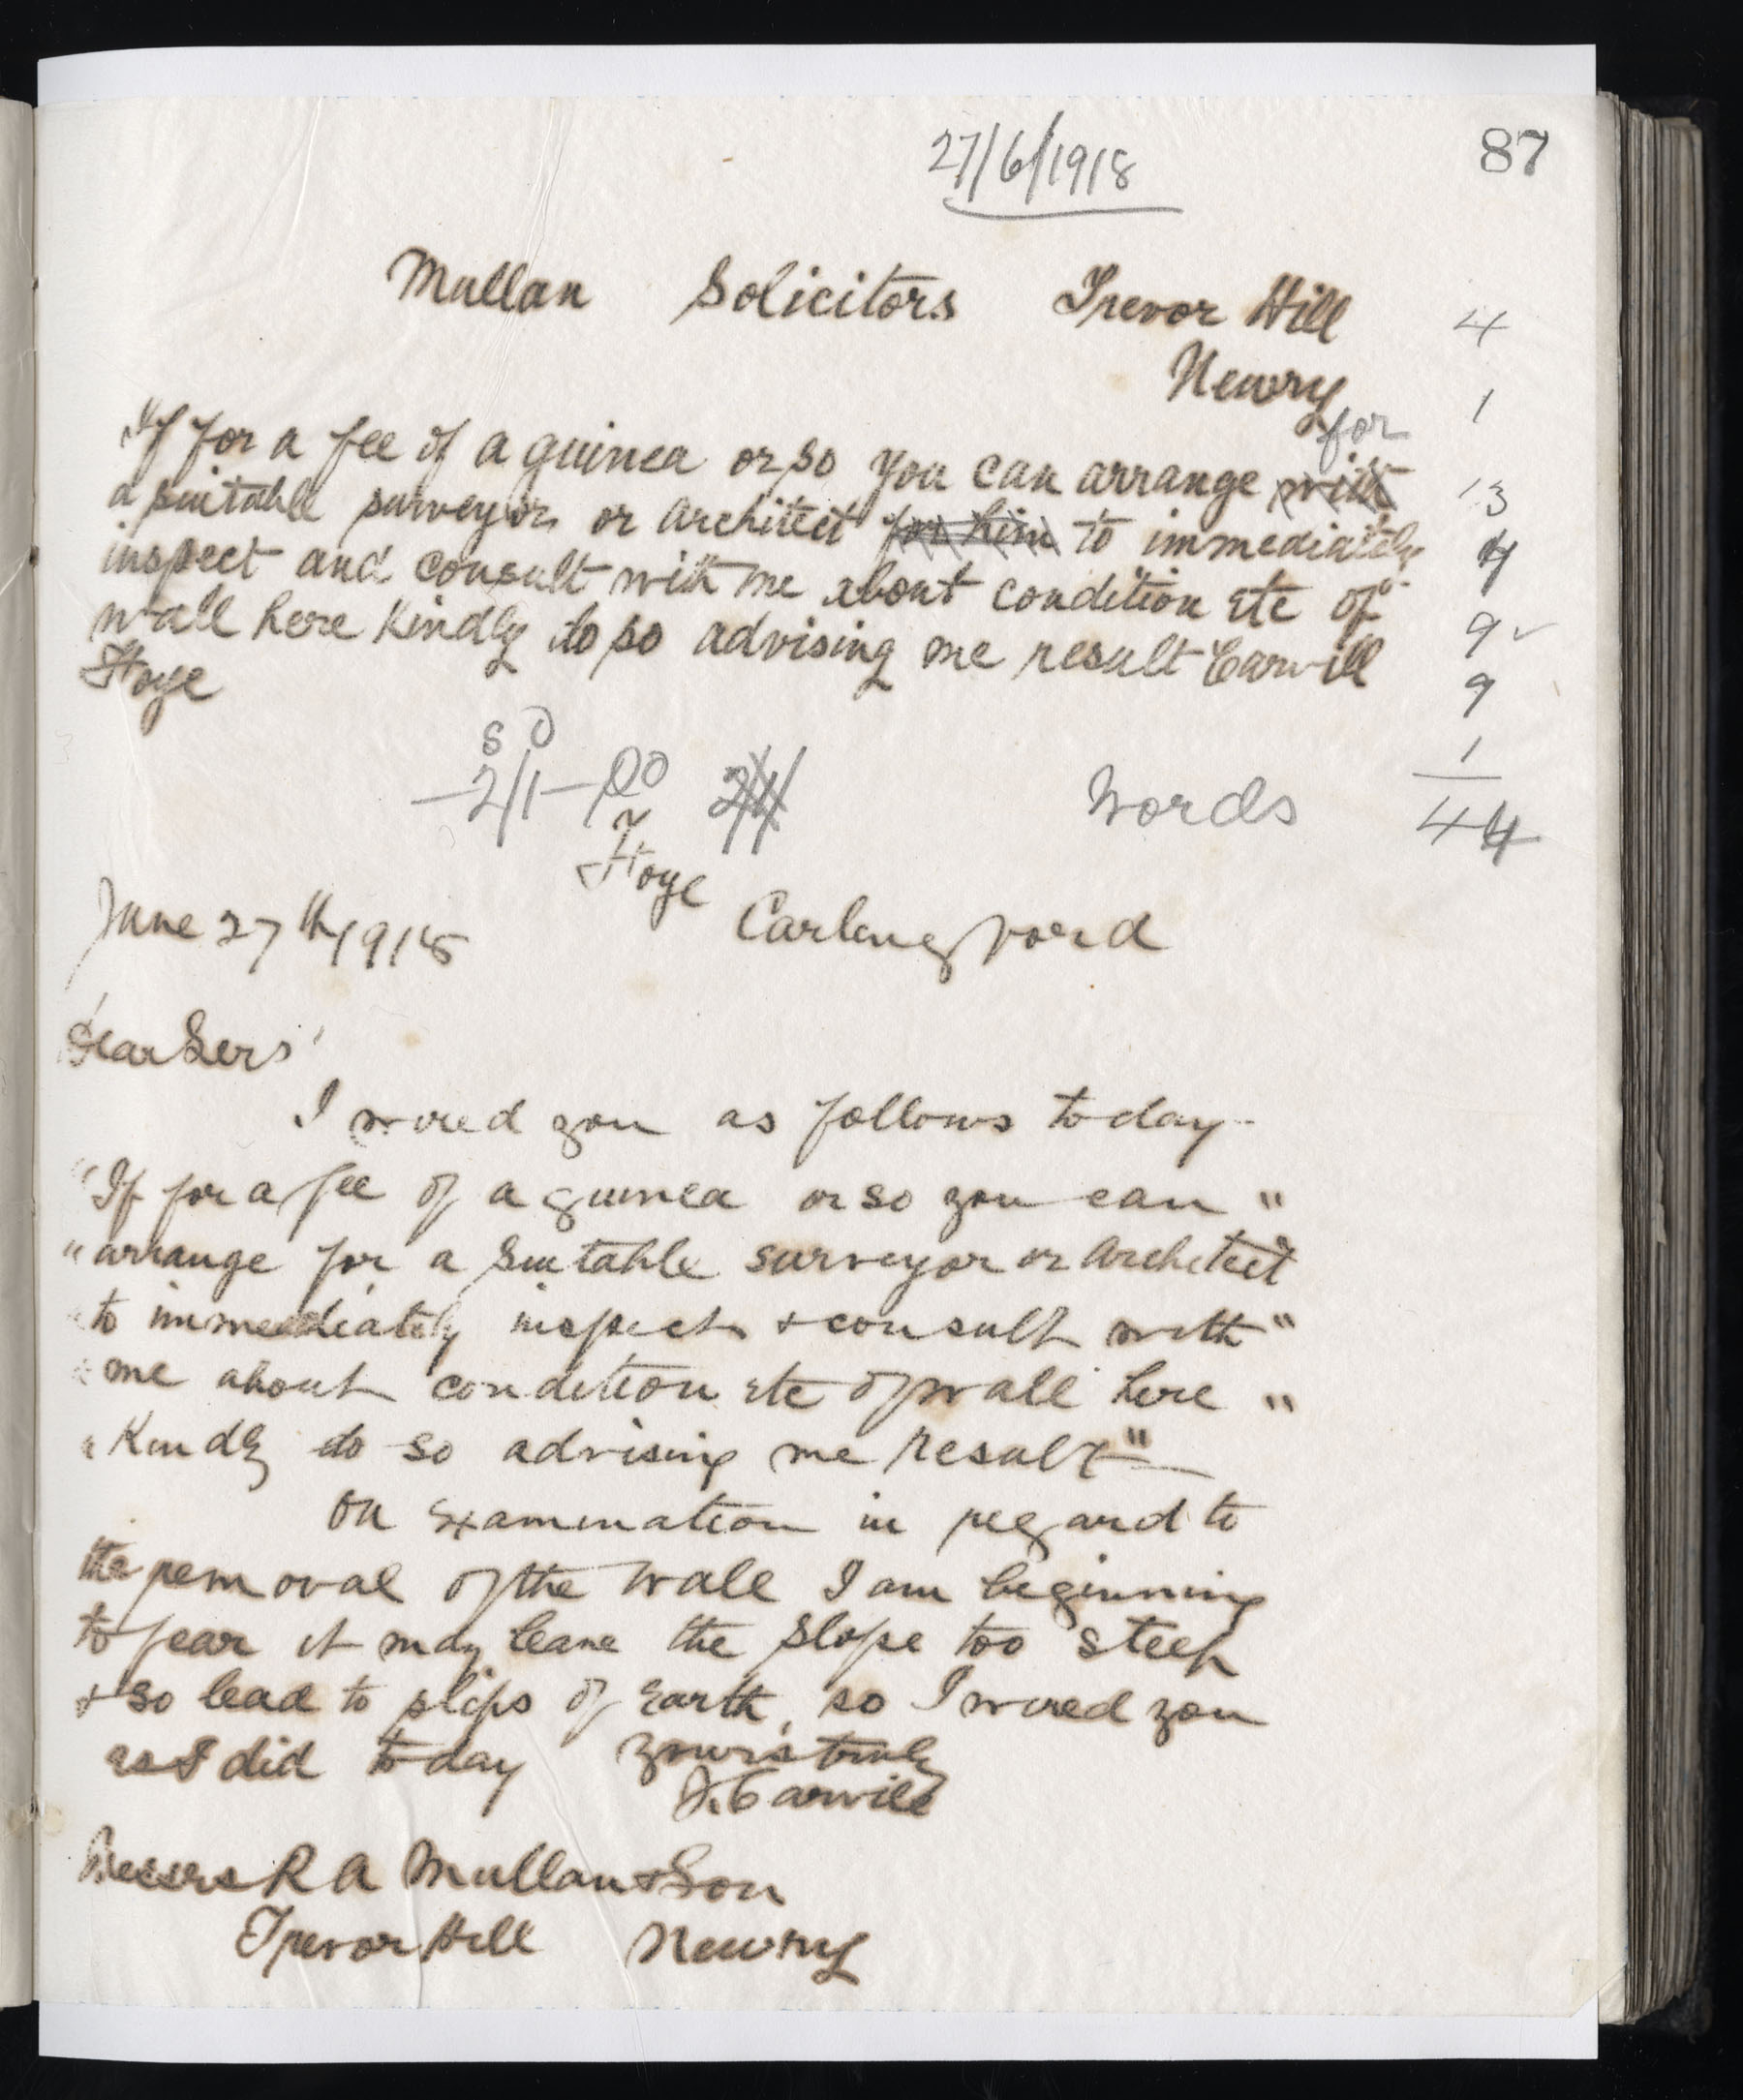 27/6/1918
87
Mullan Solicitors Trevor Hill 4
Newry 1
for
If for a fee of a guinea or so you can arrange with 13
a suitable surveyor or architect for him to immediately 7
inspect and consult with me about condition etc of 9
wall here Kindly do so advising me result Carvill 9
Hoye 1
S D
2/1 Words 44
Hoye
June 27th 1918 Carlingford
Dear Sirs
I wired you as follows today
"If for a fee of a guinea or so you can "
" arrange for a suitable surveyor or architect
" to immediately inspect & consult with "
" me about condition etc of wall here "
" Kindly do so advising me result "
On examination in regard to
the removal of the wall I am beginning
to fear it may leave the slope too steep
& so lead to slips of earth, so I wired you
as I did today yours truly
J. Carvill
Messrs R A Mullan & Son
Trevor Hill Newry